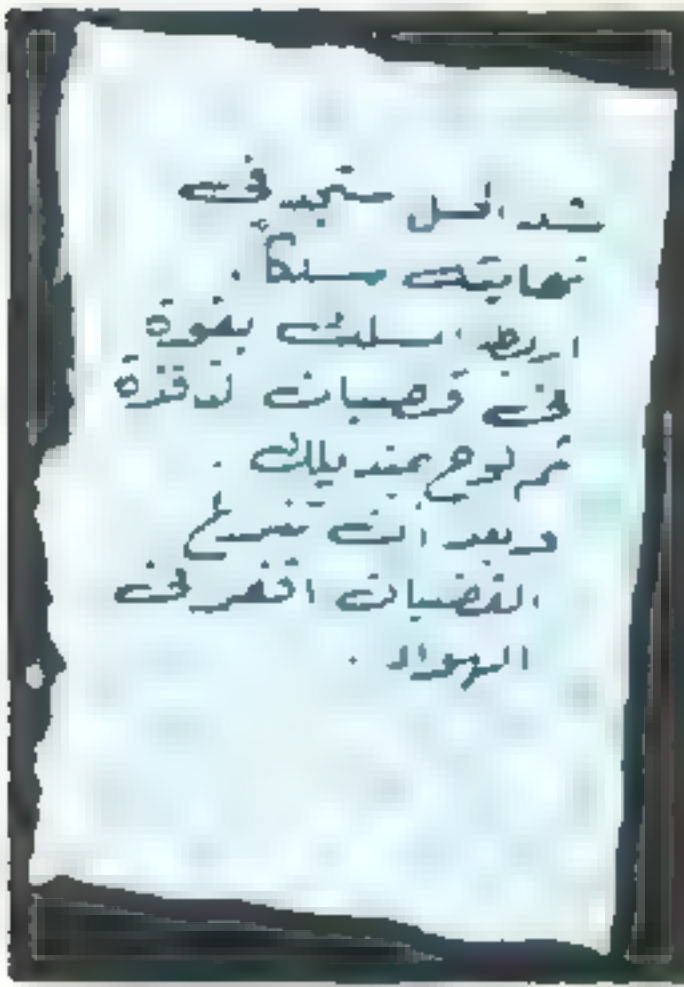 شد الحبل ستجد في
نهايته سلكاً .
اربط السلك بقوة
في قضبان النافذة
ثم لوح بمنديلك .
وبعد أن تنتزع
القضبان اقفز في
الهواء .